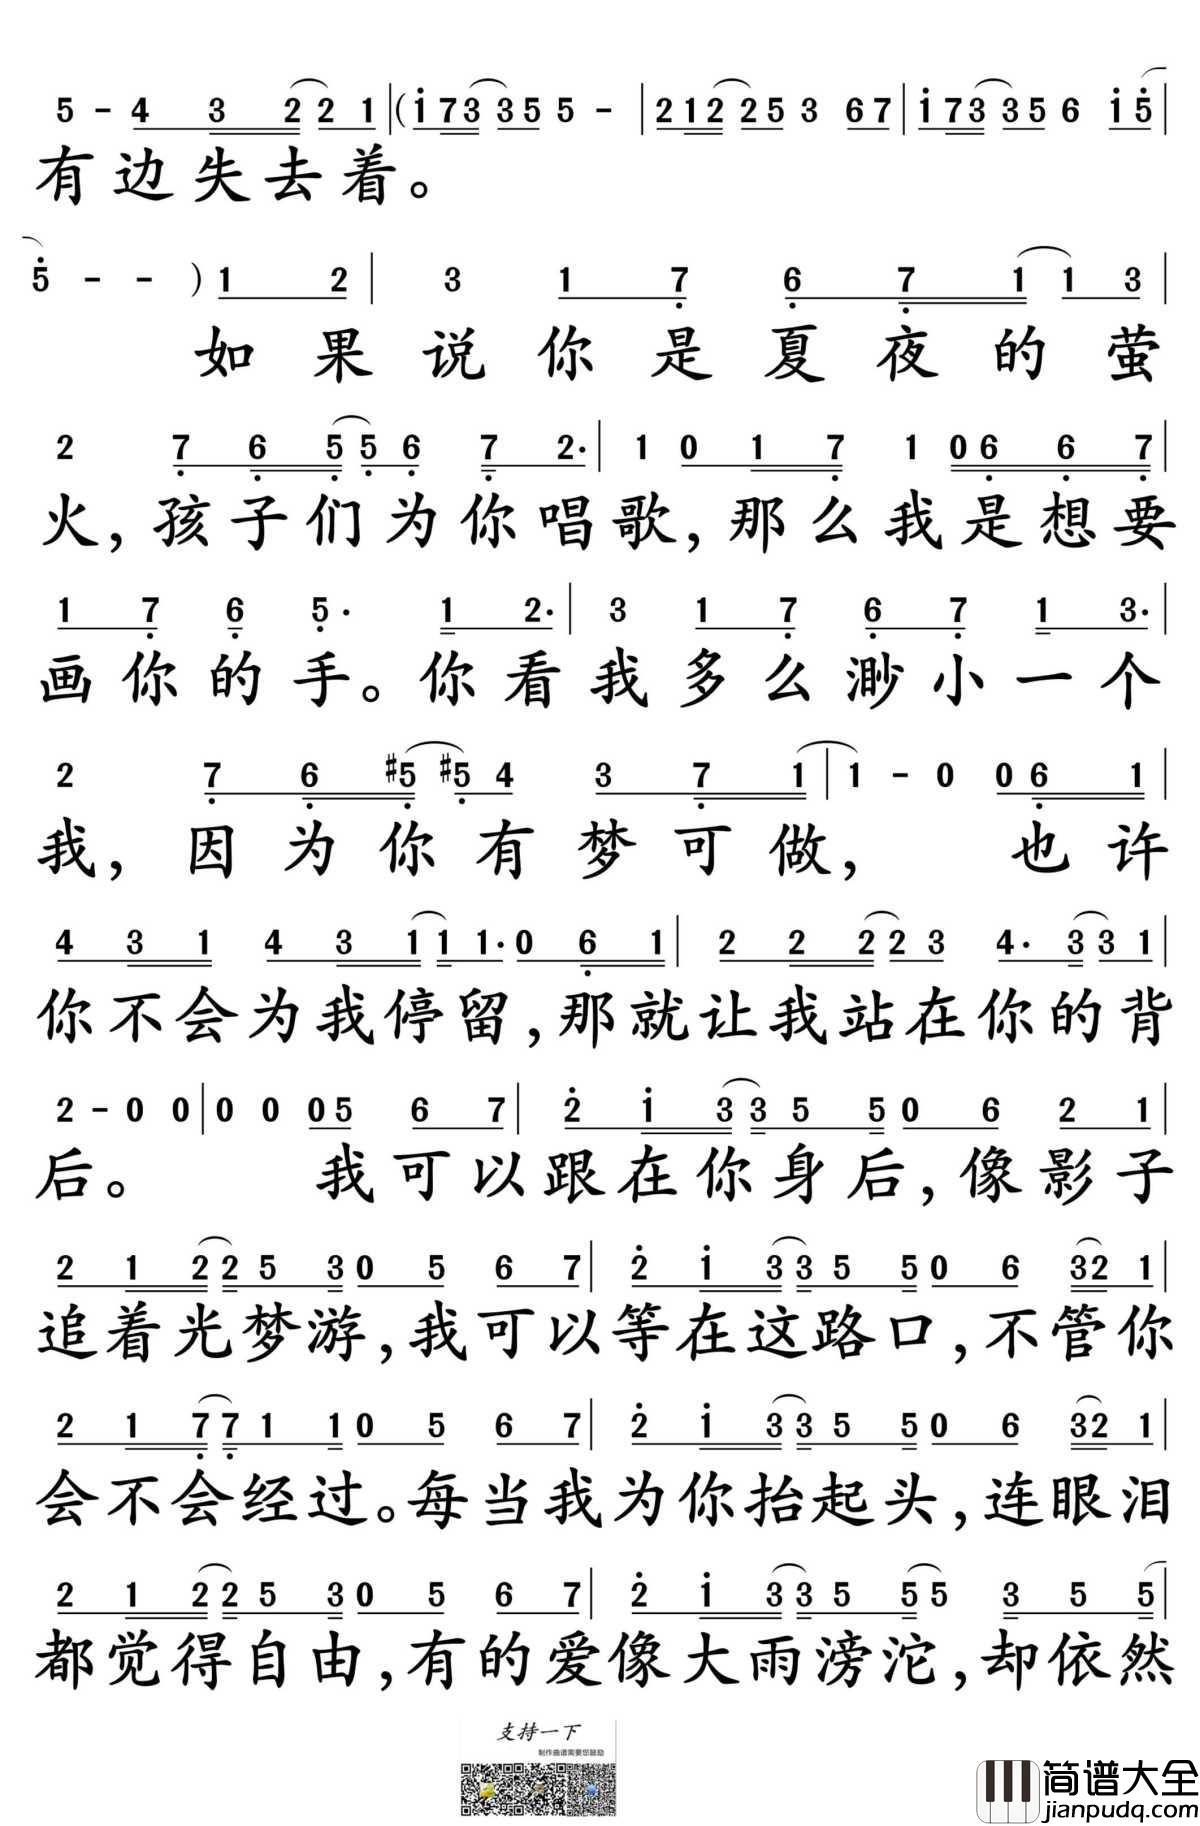 5 - 4 3 2 2 1 | ( i 7 3 3 5 5 - | 2 1 2 2 5 3 6 7 | i 7 3 3 5 6 i 5 |
有边失去着。
5 - - ) 1 2 | 3 1 7 6 7 1 1 3 |
如果说你是夏夜的萤
2 7 6 5 5 6 7 2· | 1 0 1 7 1 0 6 6 7 |
火,孩子们为你唱歌,那么我是想要
1 7 6 5· 1 2· | 3 1 7 6 7 1 3· |
画你的手。你看我多么渺小一个
2 7 6 #5 #5 4 3 7 1 | 1 - 0 0 6 1 |
我,因为你有梦可做,也许
4 3 1 4 3 1 1 1· 0 6 1 | 2 2 2 2 3 4· 3 3 1 |
你不会为我停留,那就让我站在你的背
2 - 0 0 | 0 0 0 5 6 7 | 2 i 3 3 5 5 0 6 2 1 |
后。我可以跟在你身后,像影子
2 1 2 2 5 3 0 5 6 7 | 2 i 3 3 5 5 0 6 3 2 1 |
追着光梦游,我可以等在这路口,不管你
2 1 7 7 1 1 0 5 6 7 | 2 i 3 3 5 5 0 6 3 2 1 |
会不会经过。每当我为你抬起头,连眼泪
2 1 2 2 5 3 0 5 6 7 | 2 i 3 3 5 5 5 3 5 5 |
都觉得自由,有的爱像大雨滂沱,却依然
支持一下
制作曲谱需要您鼓励
简谱大全
jianpudq.com